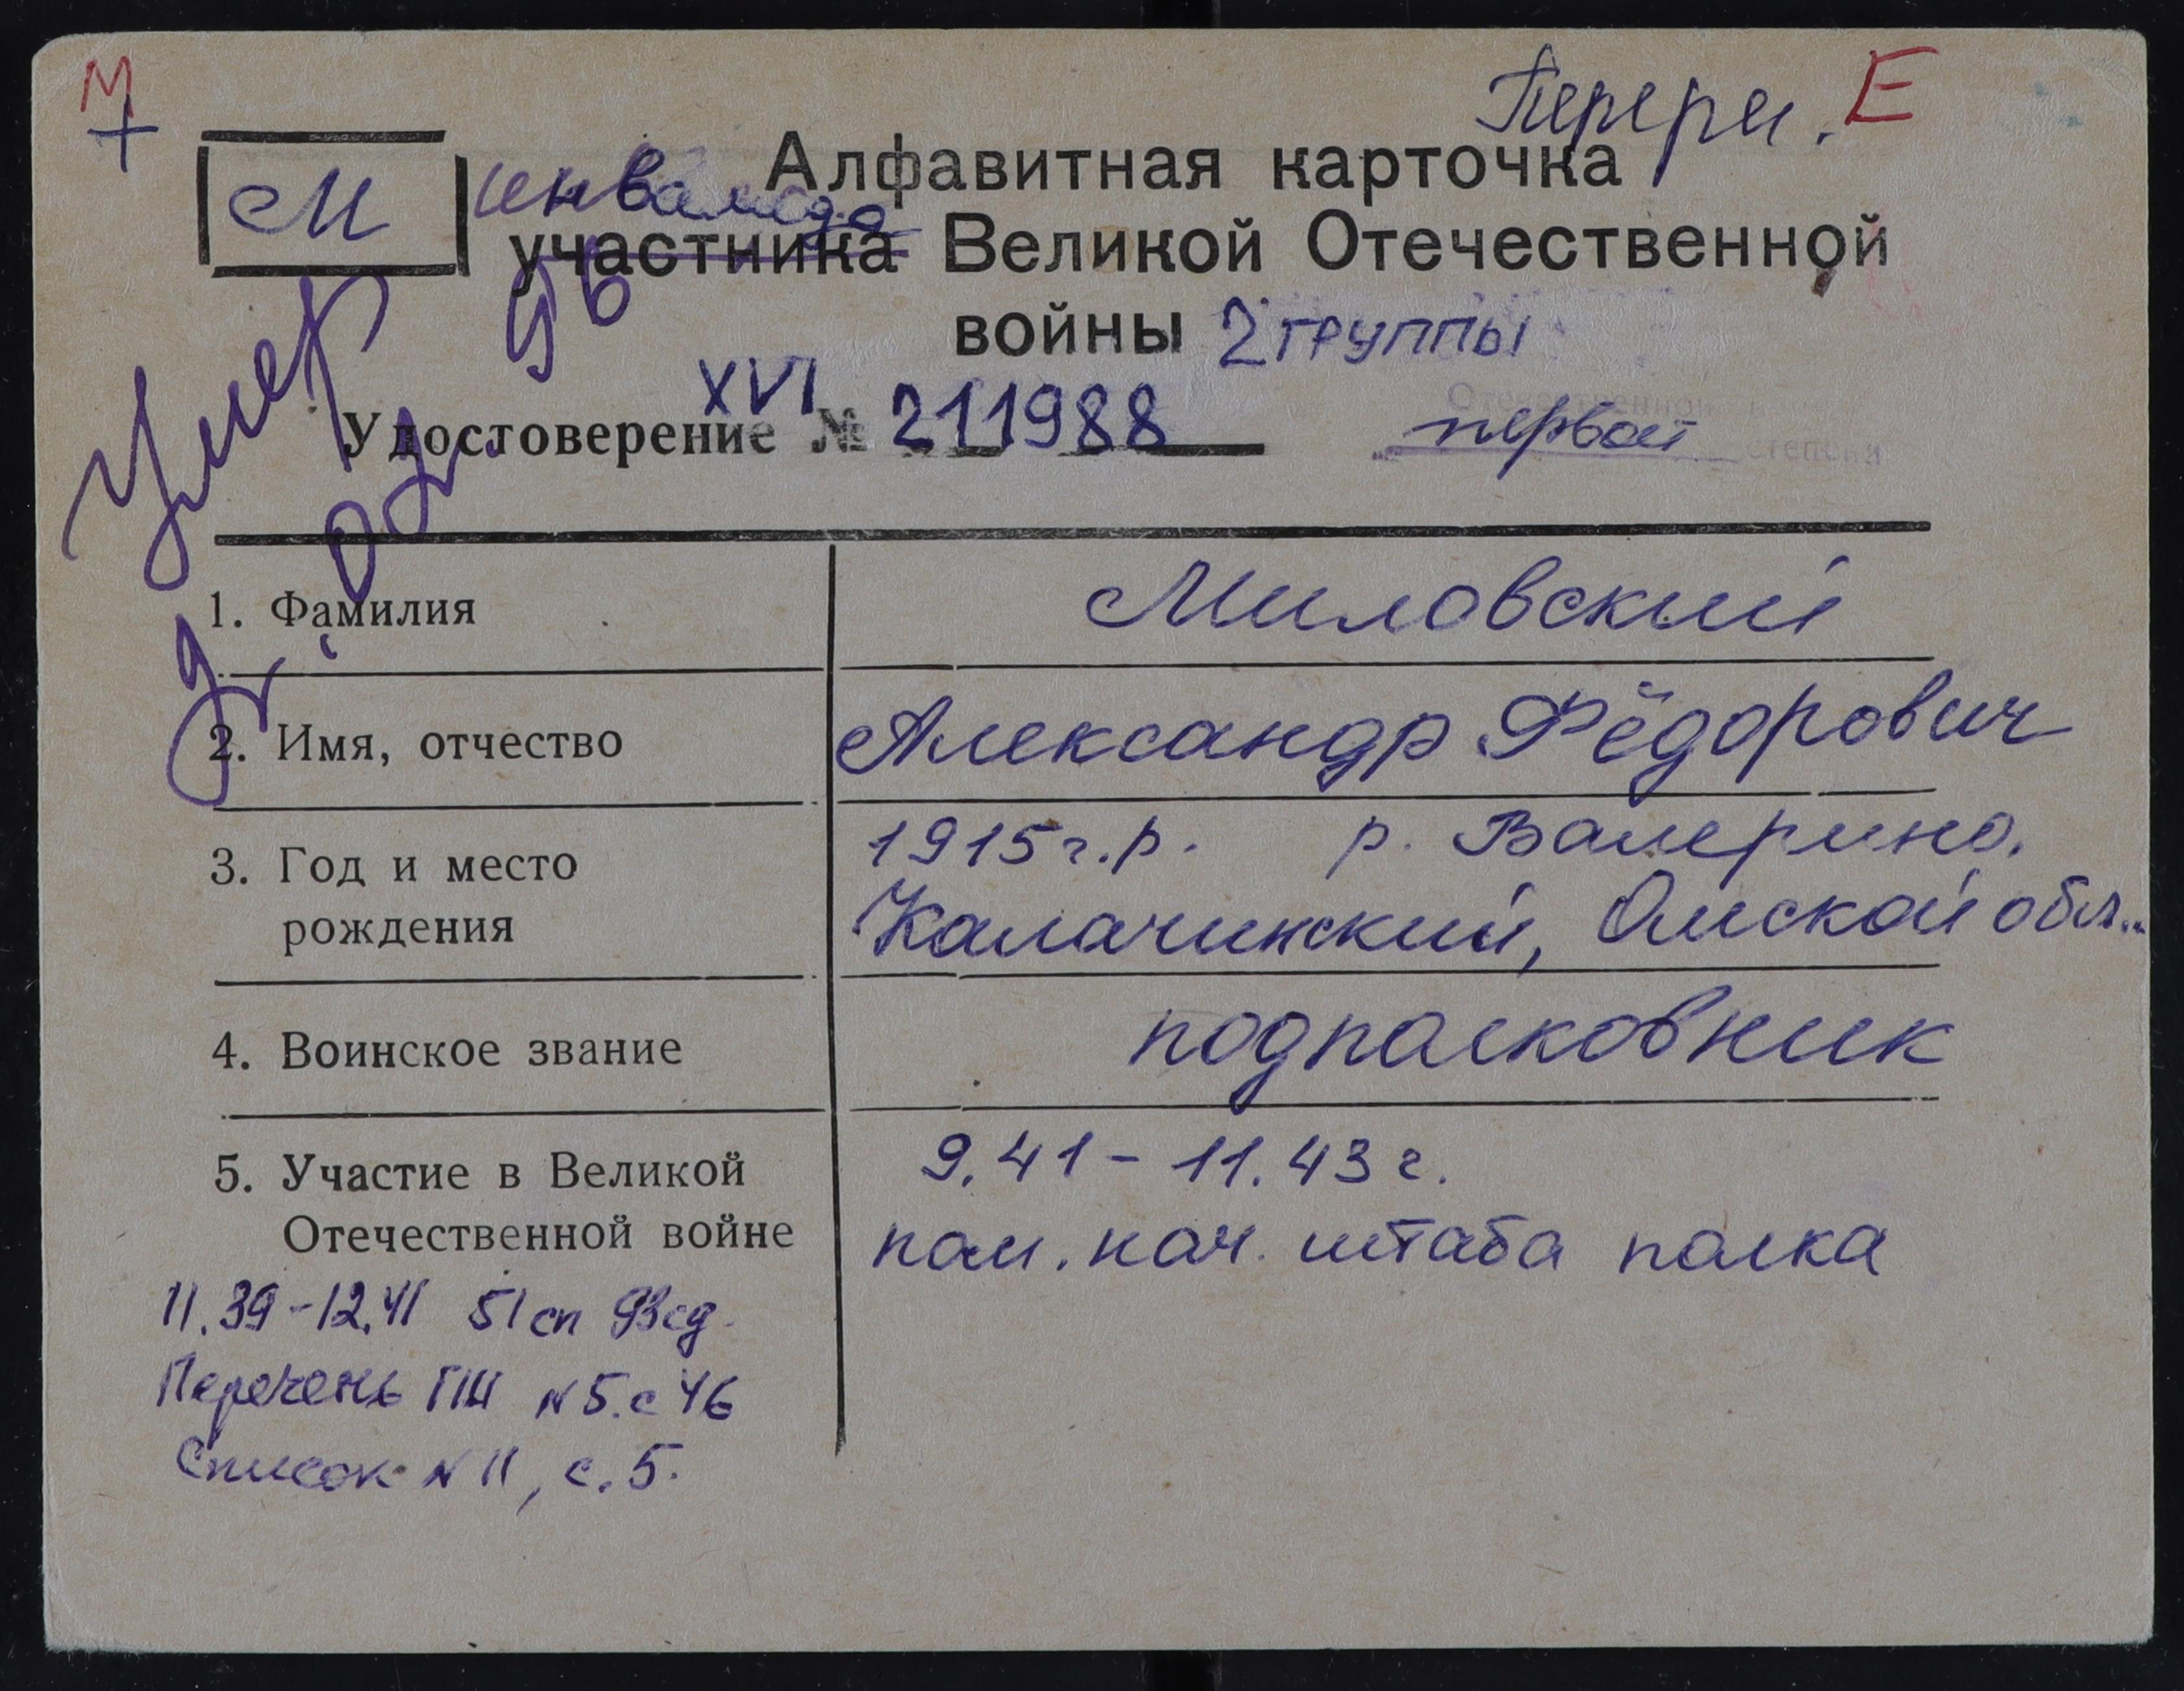 М
Е
М
инвалида
Алфавитная карточка
участника Великой Отечественной
войны 2 группы
96
XVI
Удостоверение № 211988
Отечественной
первой степени
Умер
1. Фамилия Миловский
2. Имя, отчество Александр Фёдорович
3. Год и место рождения
1915 г.р. р. Валерино,
Калачинский, Омской обл.
4. Воинское звание подполковник
5. Участие в Великой Отечественной войне
9.41 - 11.43 г.
пом. нач. штаба полка
11.39 - 12.41 51 сп 93 сд
Перечень ГШ N 5. с 46
Список N 11, с. 5.